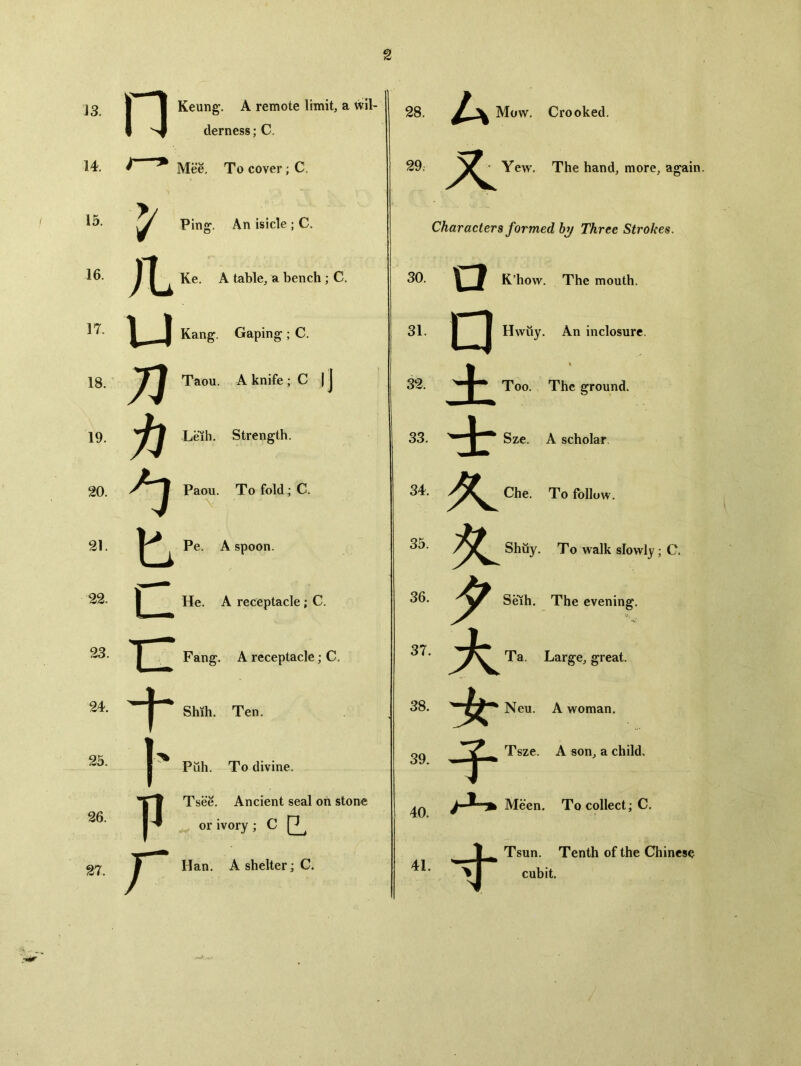 2
13. 冂 Keung. A remote limit, a wil-
derness; C.
14. 冖 Mëĕ. To cover; C.
15. 冫 Ping. An isicle; C.
16. 几 Ke. A table, a bench; C.
17. 凵 Kang. Gaping; C.
18. 刀 Taou. A knife; C 刂
19. 力 Leĭh. Strength.
20. 勹 Paou. To fold; C.
21. 匕 Pe. A spoon.
22. 匚 He. A receptacle; C.
23. 匸 Fang. A receptacle; C.
24. 十 Shĭh. Ten.
25. 卜 Pŭh. To divine.
26. 卩 Tsëĕ. Ancient seal on stone
or ivory; C 㔾
27. 厂 Han. A shelter; C.
28. 厶 Mow. Crooked.
29. 又 Yew. The hand, more, again.
Characters formed by Three Strokes.
30. 口 K'how. The mouth.
31. 囗 Hwŭy. An inclosure.
32. 土 Too. The ground.
33. 士 Sze. A scholar.
34. 夂 Che. To follow.
35. 夊 Shŭy. To walk slowly; C.
36. 夕 Seĭh. The evening.
37. 大 Ta. Large, great.
38. 女 Neu. A woman.
39. 子 Tsze. A son, a child.
40. 宀 Mëen. To collect; C.
41. 寸 Tsun. Tenth of the Chinese
cubit.